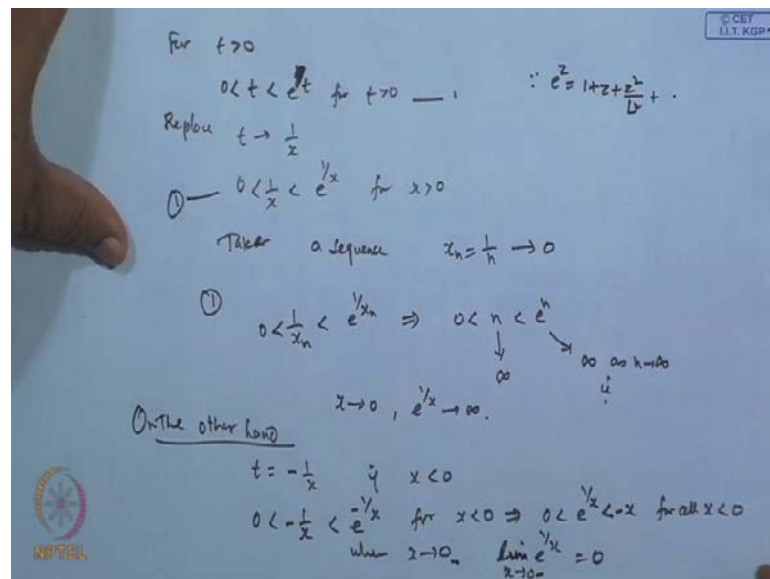 © CET
I.I.T. KGP
For t>0
0< t < e^t for t>0 — 1 ∵ e^z = 1+z+z²/L2 + .
Replace t → 1/x
① — 0< 1/x < e^{1/x} for x>0
Take a sequence x_n = 1/n → 0
① 0< 1/x_n < e^{1/x_n} ⇒ 0< n < e^n
↓ ∞ ↘ ∞ as n→∞
x→0 , e^{1/x} → ∞.
On the other hand
t = -1/x if x<0
0< -1/x < e^{-1/x} for x<0 ⇒ 0< e^{1/x} < -x for all x<0
when x→0- lim_{x→0-} e^{1/x} = 0
NPTEL